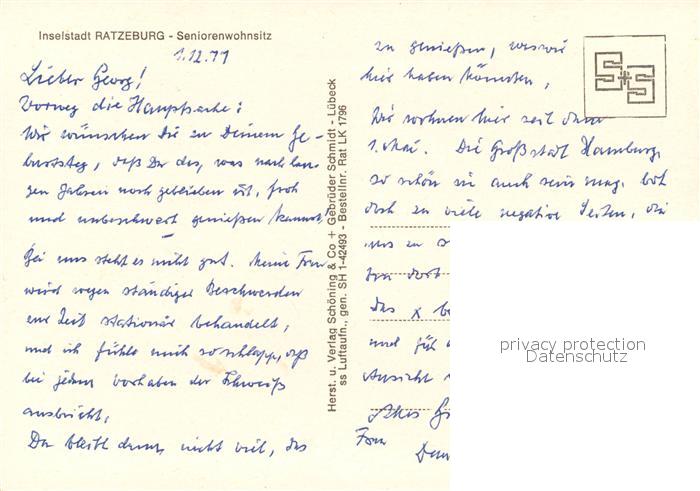 Inselstadt RATZEBURG - Seniorenwohnsitz
1.12.71
Lieber Georg!
Vorweg die Hauptsache:
Wir wünschen Dir zu Deinem Ge-
burtstag, daß Du das, was nach lan-
gen Jahren noch geblieben ist, froh
und unbeschwert genießen kannst!
Bei uns steht es nicht gut. Meine Frau
wird wegen ständiger Beschwerden
zur Zeit stationär behandelt,
und ich fühle mich so schlapp, daß
bei jedem Vorhaben der Schweiß
ausbricht.
Da bleibt denn nicht viel, das
Herst. u. Verlag Schöning & Co + Gebrüder Schmidt - Lübeck
ss Luftaufn., gen. SH 1-42493 - Bestellnr. Rat LK 1796
zu genießen, was wir
hier haben könnten.
Wir wohnen hier seit dem
1. Mai. Die Großstadt Hamburg,
so schön sie auch sein mag, bot
doch zu viele negative Seiten, die
uns zu
dort
das x
und für
Aussicht
Alles
Frau
privacy protection
Datenschutz